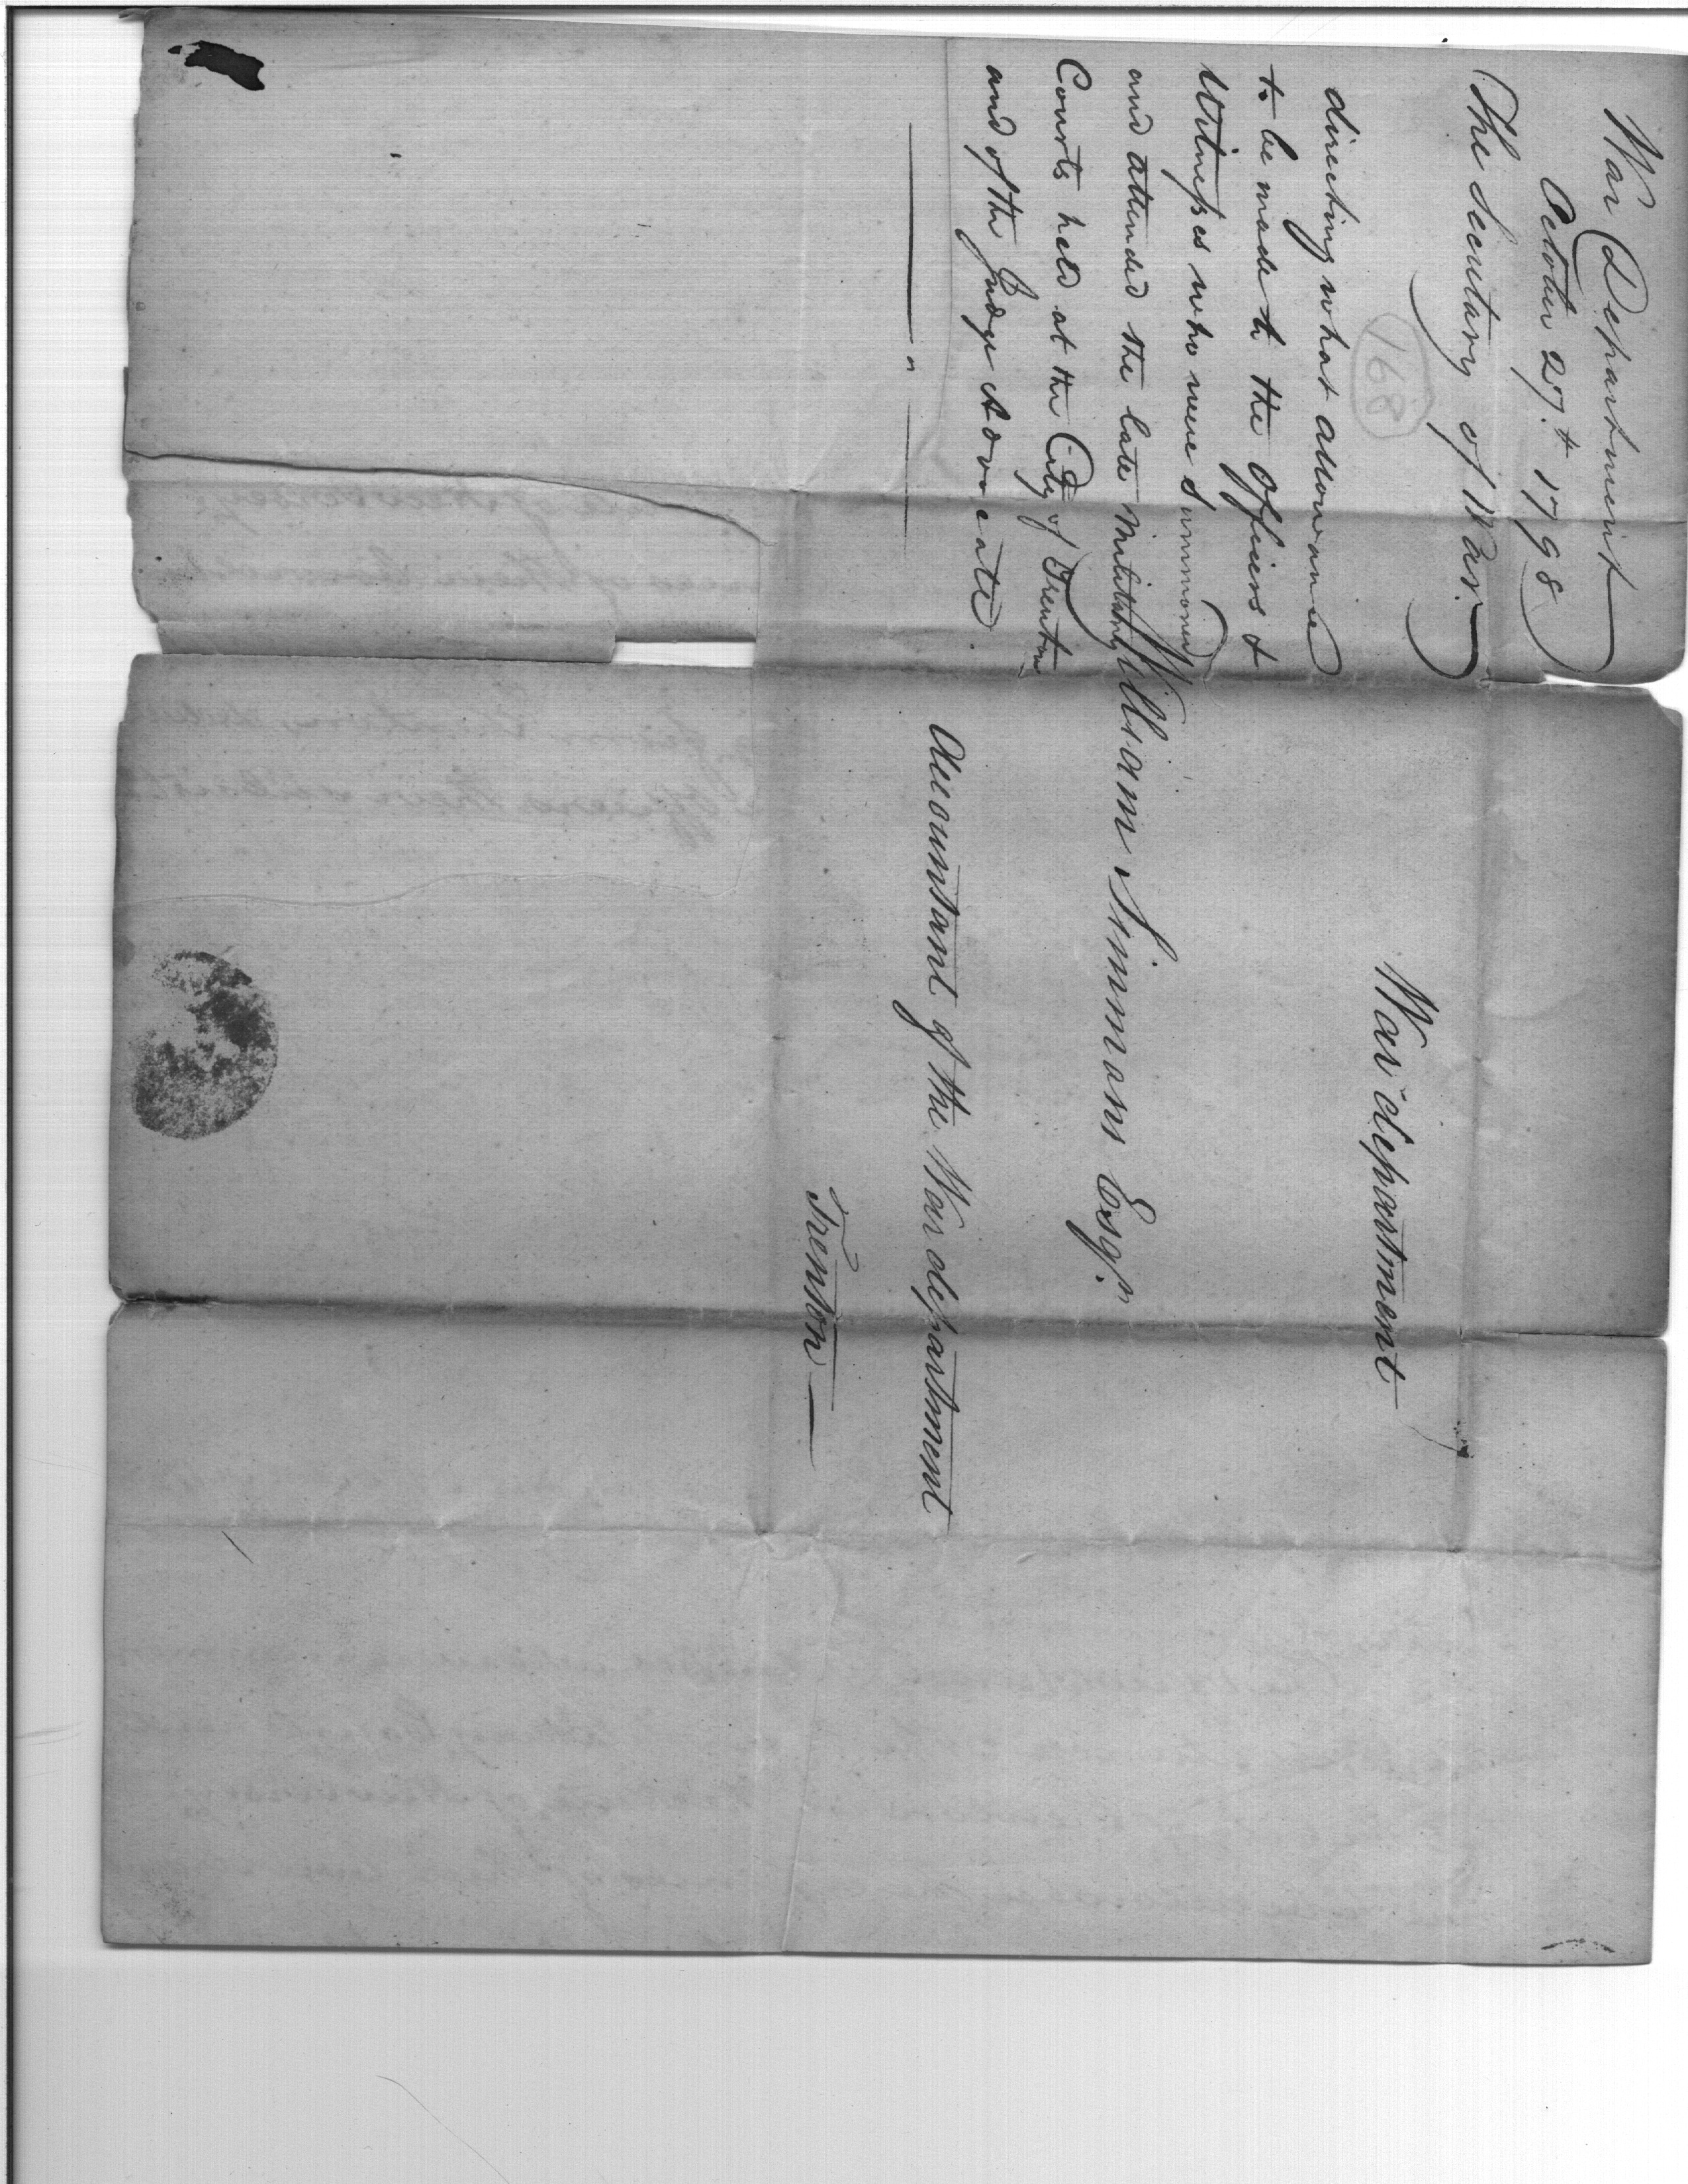 War Department
October 27.t 1798
The Secretary of War.
168
directing what allowance
to be made to the Officers &
Witnesses who were Summoned
and attended the late Military
Courts held at the City of Trenton
and of the Judge Advocate.
War department
William Simmons Esqr.
Accountant of the War department
Trenton